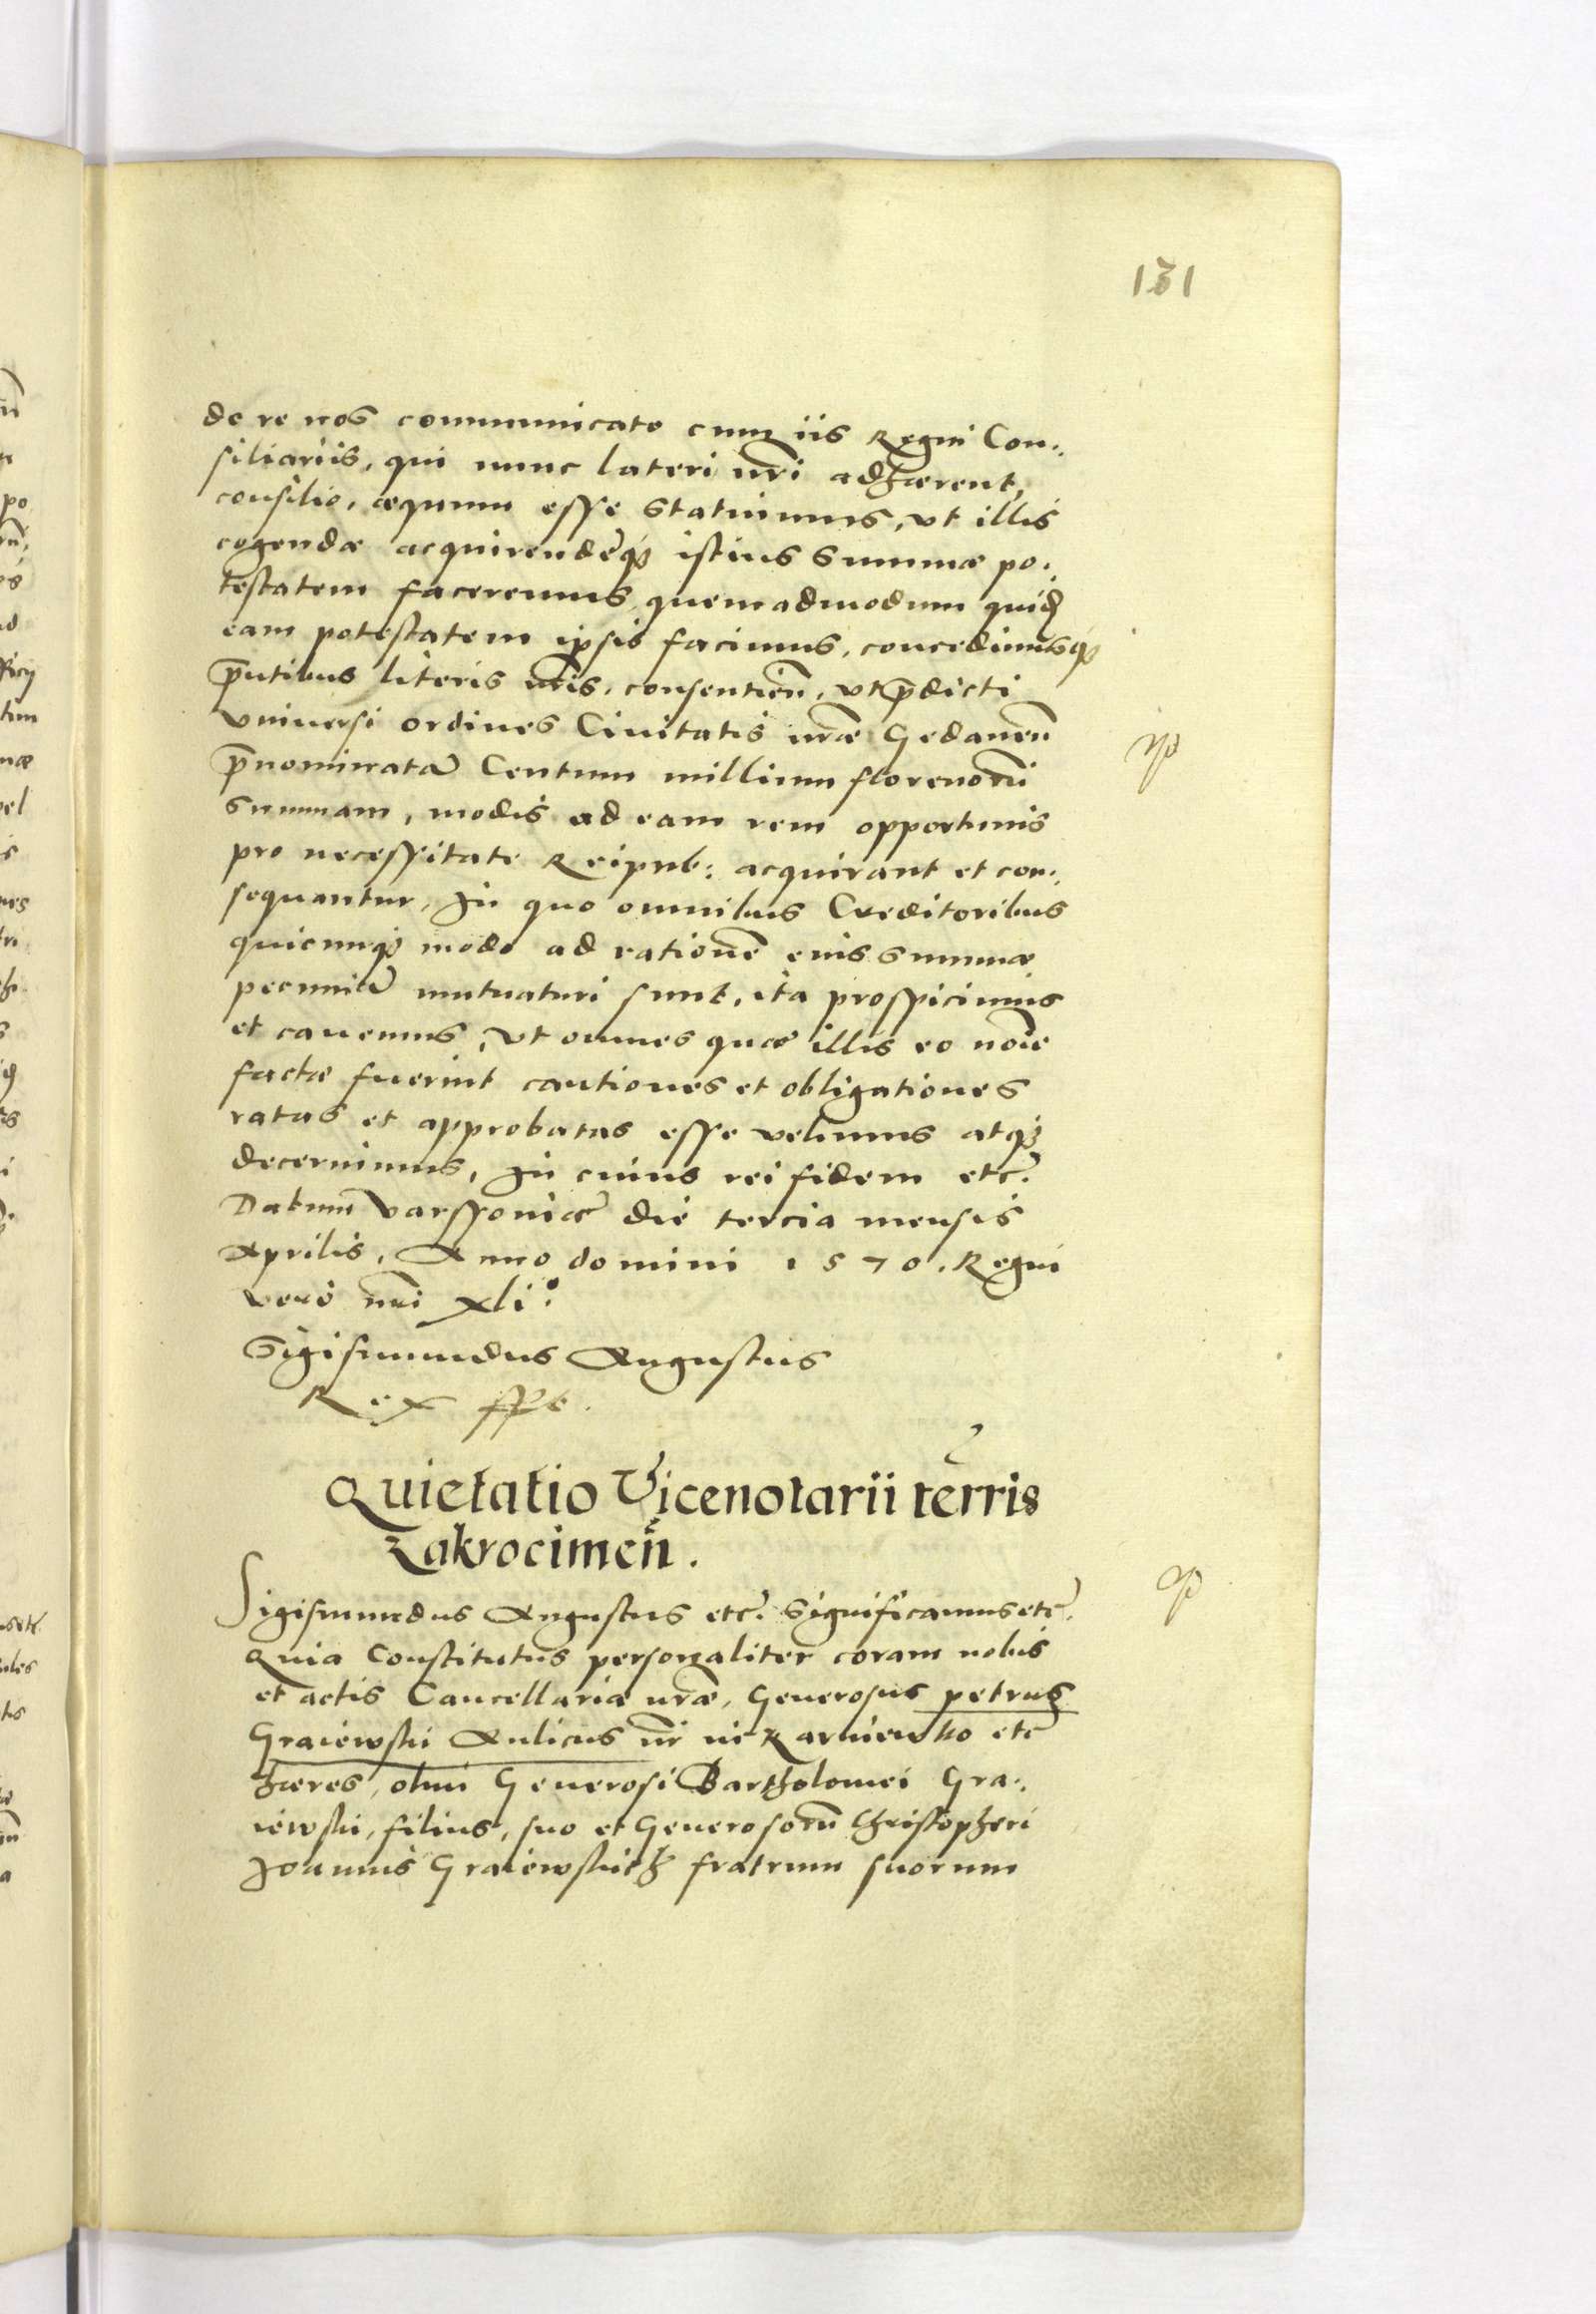 131
de re nos communicato cum iis Regni Con-
siliariis, qui nunc lateri nr̃i adhærent,
consilio, æquum esse statuimus, vt illis
cogendæ acquirendæq₃ istius summæ po-
testatem faceremus, quemadmodum quid̃
eam potestatem ipsis facimus, concedimusq₃
p̃ntibus literis nr̃is, consentien̄, vt p̃dicti
vniuersi ordines Ciuitatis nr̃æ Gedanen̄
p̃nominatã Centum millium florenorũ
summam, modis ad eam rem opportunis
pro necessitate Reipub: acquirant et con-
sequantur, In quo omnibus Creditoribus
quicunq₃ modo ad rationẽ eius summæ
pecuniã mutuaturi sunt, ita prospicimus
et cauemus, vt omnes quæ illis eo noĩe
factæ fuerint cautiones et obligationes
ratas et approbatas esse velimus atq₃
decernimus, In cuius rei fidem etc̃.
Datum Varssouiæ die tercia mensis
Aprilis, Anno domini 1570. Regni
vero nr̃i xli°.
Sigismundus Augustus
Rex sspt.
Quietatio Vicenotarii terris
Zakrocimen̄.
Sigismundus Augustus etc̃. Significamus etc̃.
Quia Constitutus personaliter coram nobis
et actis Cancellariæ nr̃æ, Generosus petrus
Graiewski Aulicus nr̃ in Karniewko etc̃
hæres, olim Generosi Bartholomei Gra-
iewski, filius, suo et Generosorũ Christopheri
Joannis Graiewskich fratrum suorum